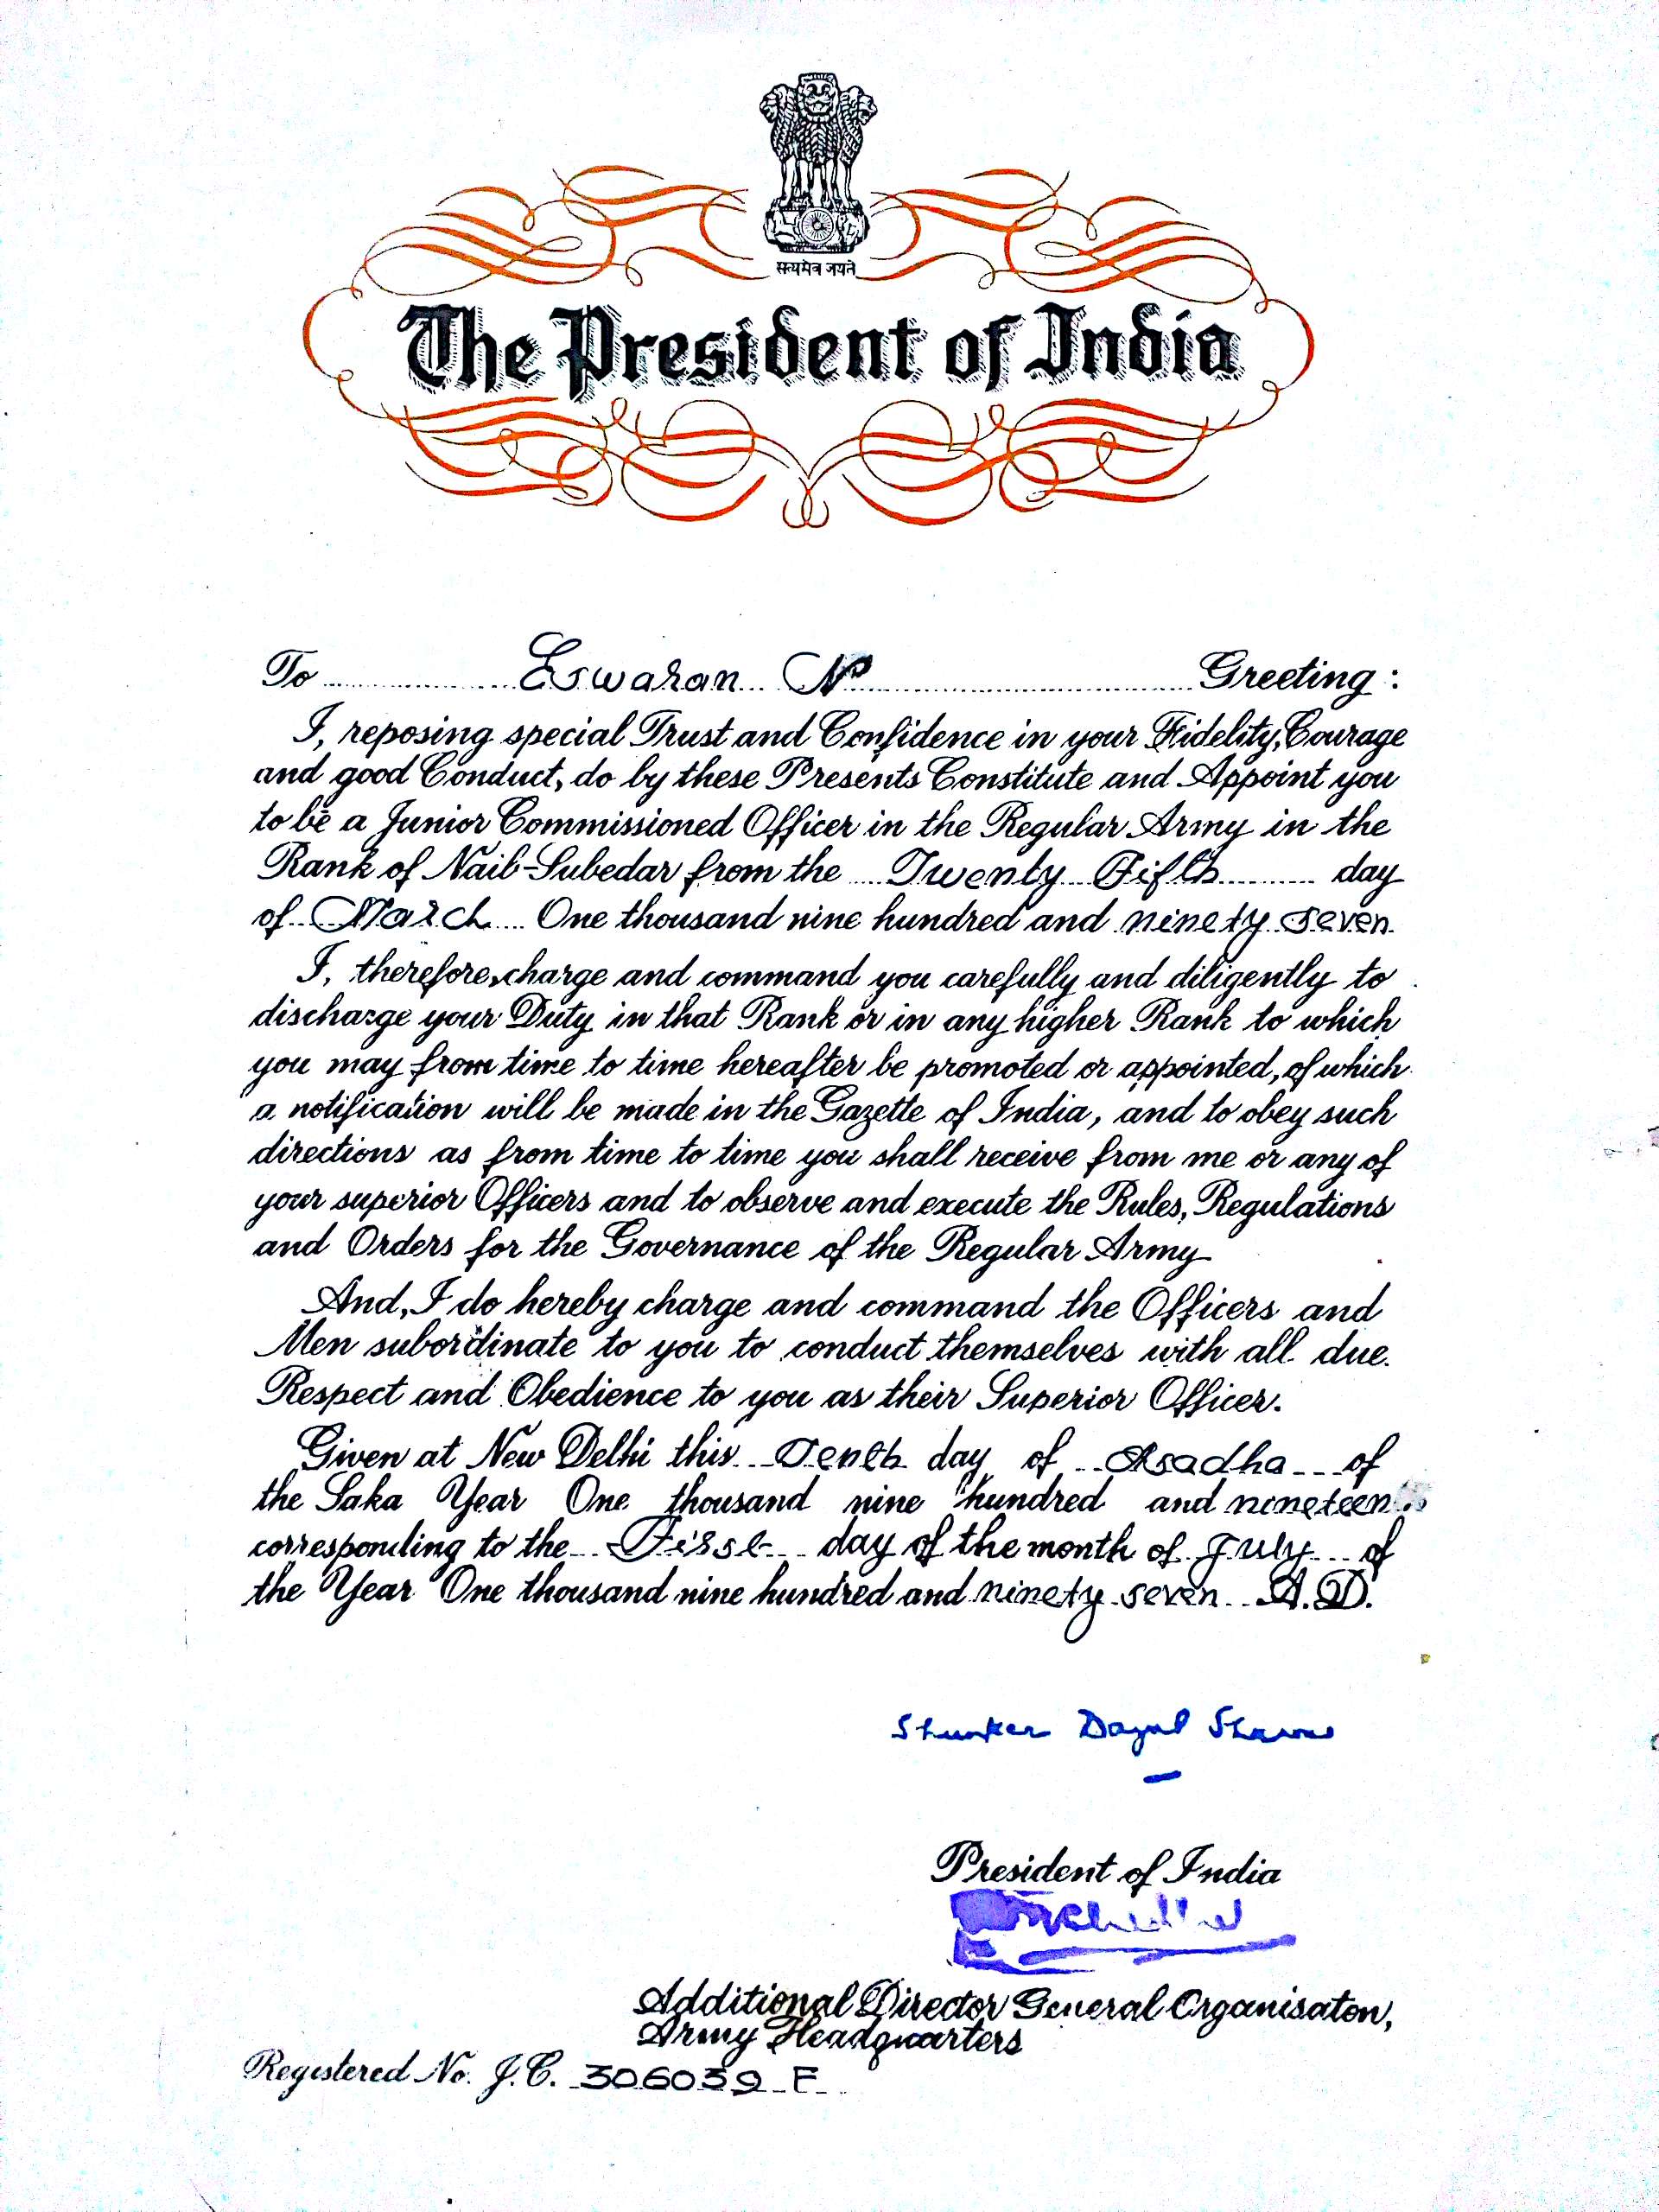 सत्यमेव जयते
The President of India
To Eswaran N Greeting :
I, reposing special Trust and Confidence in your Fidelity, Courage
and good Conduct, do by these Presents Constitute and Appoint you
to be a Junior Commissioned Officer in the Regular Army in the
Rank of Naib-Subedar from the Twenty Fifth day
of March One thousand nine hundred and ninety seven
I, therefore, charge and command you carefully and diligently to
discharge your Duty in that Rank or in any higher Rank to which
you may from time to time hereafter be promoted or appointed, of which
a notification will be made in the Gazette of India, and to obey such
directions as from time to time you shall receive from me or any of
your superior Officers and to observe and execute the Rules, Regulations
and Orders for the Governance of the Regular Army
And, I do hereby charge and command the Officers and
Men subordinate to you to conduct themselves with all due
Respect and Obedience to you as their Superior Officer.
Given at New Delhi this Tenth day of Asadha of
the Saka Year One thousand nine hundred and nineteen
corresponding to the First day of the month of July of
the Year One thousand nine hundred and ninety seven A.D.
Shanker Dayal Sharma
President of India
Additional Director General Organisaton,
Army Headquarters
Registered No. J.C. 306039 F